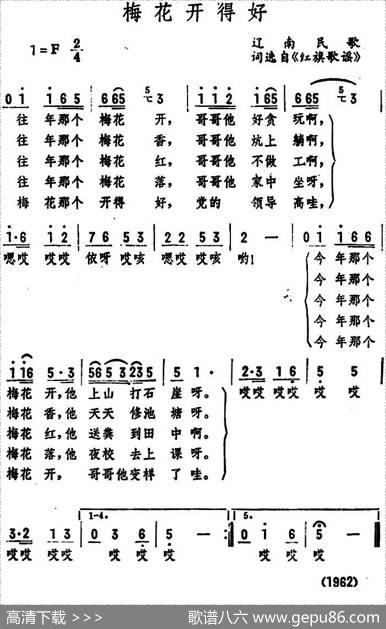 梅花开得好
1=F 2/4
辽南民歌
词选自《红旗歌谣》
0 1 1 6 5 6 65 5 3 1 1 2 1 6 6 65 3
往 年那个 梅花 开, 哥哥他 好贪 玩啊,
往 年那个 梅花 香, 哥哥他 炕上 躺啊,
往 年那个 梅花 红, 哥哥他 不做 工啊,
往 年那个 梅花 落, 哥哥他 家中 坐呀,
梅 花那个 开得 好, 党的 领导 高哇,
1·6 1 2 7 6 5 3 2 2 5 3 2 — 0 1 1 6 6
嗯哎 哎哎 侬呀 哎咳 嗯哎 哎咳 哟! 今 年那个
今 年那个
今 年那个
今 年那个
今 年那个
1 16 5·3 56 53 23 5 5 1· 2·3 1 6 5 5
梅花 开,他 上山 打石 崖呀。 哎哎 哎哎 哎 哎
梅花 香,他 天天 修池 塘呀。
梅花 红,他 送粪 到田 中啊。
梅花 落,他 夜校 去上 课呀。
梅花 开, 哥哥他 变样 了哇。
1-4. 5.
3·2 1 3 0 3 6 5 — 0 1 6 5 —
哎哎 哎哎 哎 哎 哎 哎 哎 哎
(1962)
高清下载 >>>
歌谱八六 www.gepu86.com